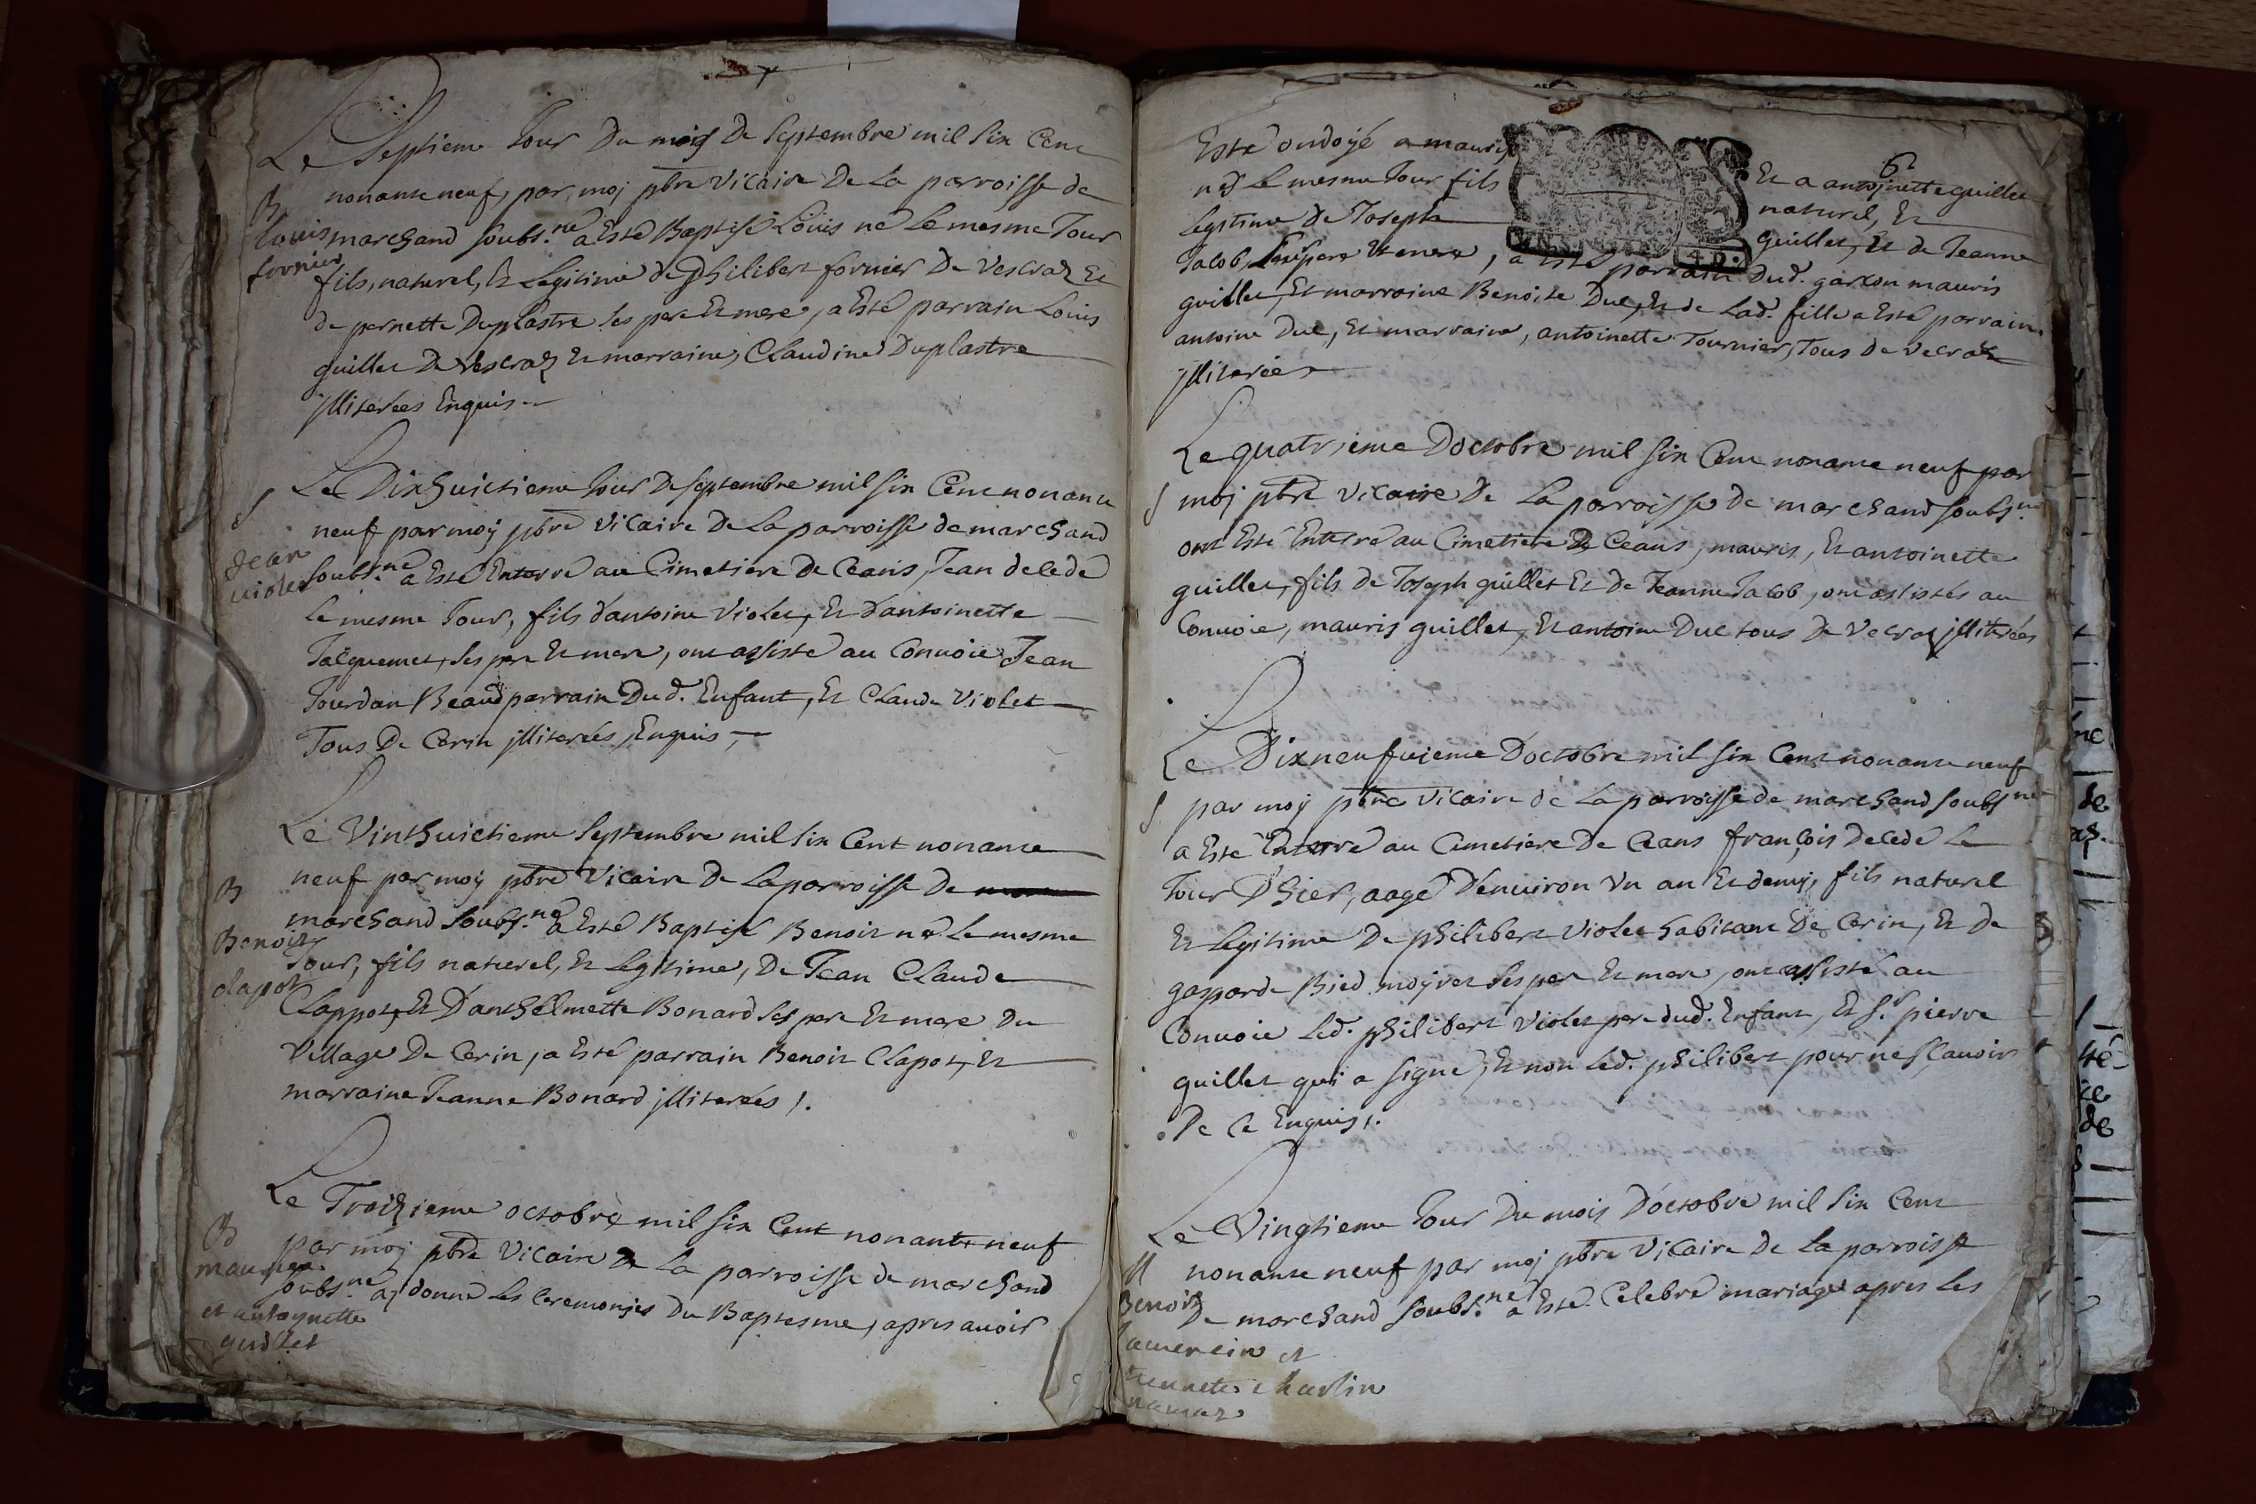 Le Septieme Jour Du mois De Septembre mil Six Cent
nonante neuf, par moj pbre Vicaire De La parroisse de
B
Louis
fornier
marchand soubs.né a Esté Baptisé Loüis né Le mesme Jour
fils, naturel, Et Legitime de Philibert fornier De Vescraz Et
de pernette Duplastre ses pere Et mere, a Esté parrain Loüis
guillet De Vescraz Et marraine, Claudine Duplastre
jlliterées Enquis
Le Dixhuictieme Jour De Septembre mil Six Cent nonante
S
Jean
violet
neuf par moÿ pbre Vicaire De La parroisse de marchand
soubs.né a Esté Enterré au Cimetiere De Ceans, Jean decedé
Le mesme Jour, fils d'antoine Violet, Et d'antoinette
Jacquemet, ses pere Et mere, ont assisté au Convoie Jean
Jourdan Beaud parrain Dud. Enfant, Et Claude Violet
Tous De Cerin jlliterées Enquis
Le Vinthuictieme Septembre mil Six Cent nonante
neuf par moÿ pbre Vicaire De La parroisse De
B
Benoit
clapot
marchand soubs.né a Esté Baptisé Benoit né Le mesme
Jour, fils naturel, Et Legitime, De Jean Claude
Clappot, Et D'anthelmette Bonard ses pere Et mere Du
Village De Cerin, a Esté parrain Benoit Clapot, Et
marraine Jeanne Bonard jlliterées /.
Le Troizieme octobre mil Six Cent nonante neuf
B
par moj pbre Vicaire De La parroisse de marchand
soubs.né aj donné Les Ceremonies Du Baptesme, apres avoir
et antoynette
guillet
Esté ondoÿé a mauris
Et a antoinette guillet
né Le mesme Jour fils
naturel, Et
Legitime de Joseph
guillet, Et de Jeanne
Jacob, pere Et mere, a Esté parrain Dud. garcon mauris
guillet, Et marraine Benoite Duc, Et de Lad. fille a Esté parrain
antoine Duc, Et marraine, antoinette Tournier, Tous de Vecraz
jlliterées
Le quatrieme D'octobre mil Six Cent nonante neuf par
S
moj pbre Vicaire De La parroisse de marchand soubs.né
ont Esté Enterré au Cimetiere De Ceans, mauris, Et antoinette
guillet, fils de Joseph guillet Et De Jeanne Jacob, ont assistés au
Convoie, mauris guillet, Et antoine Duc tous De Vecraz jlliterées
Le Dixneufvieme D'octobre mil Six Cent nonante neuf
S
par moÿ pbre Vicaire de La parroisse de marchand soubs.né
a Esté Enterré au Cimetiere De Ceans françois decedé Le
Jour D'hier, aagé D'enuiron Vn an Et demy, fils naturel
Et Legitime De philibert Violet habitant De Cerin, Et de
gasparde Bied moÿret ses pere Et mere, ont assisté au
Convoie Led. philibert Violet pere dud. Enfant, Et Sr. pierre
guillet qui a signé, Et non Led. philibert pour ne sçauoir
De Ce Enquis /.
Le Vingtieme Jour Du mois D'octobre mil Six Cent
M
nonante neuf par moj pbre Vicaire De La parroisse
Benoit
De marchand soubs.né a Esté Celebré mariage apres Les